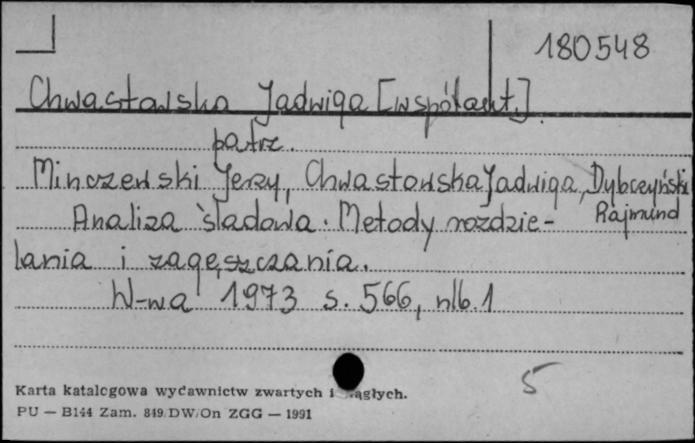 180548
Chwastowska Jadwiga [współaut.]
patrz.
Minczewski Jerzy, Chwastowska Jadwiga, Dybczyński Rajmund
Analiza śladowa. Metody rozdzie-
lania i zagęszczania.
W-wa 1973 s. 566, nlb. 1
5
Karta katalogowa wydawnictw zwartych i ągłych.
PU — B144 Zam. 849/DW/On ZGG — 1991